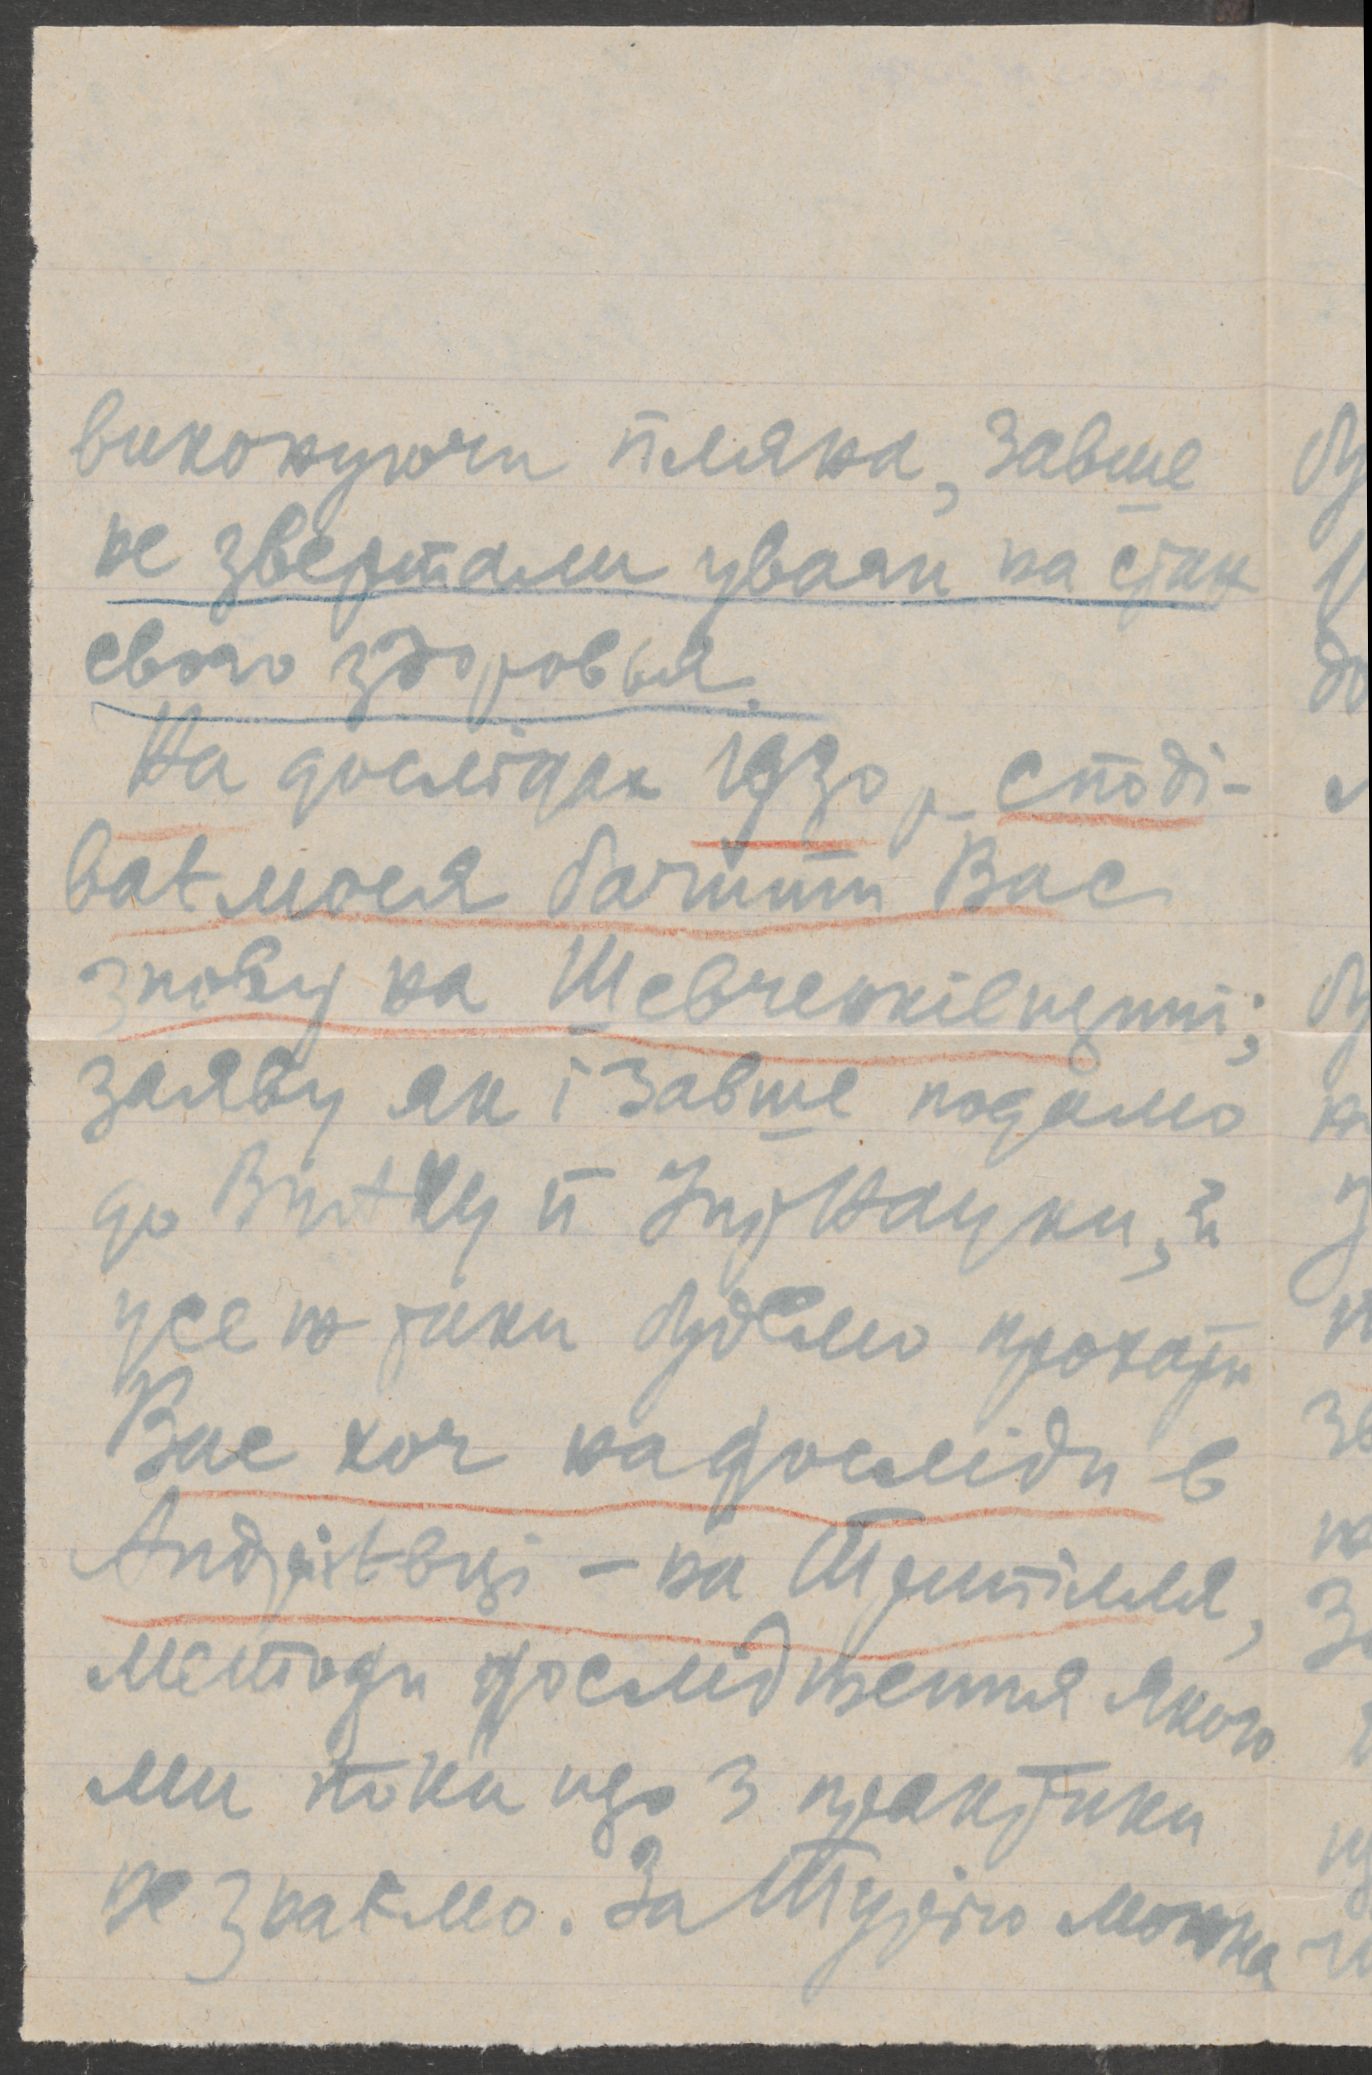 виконуючи пляна, завше
не звертали уваги на стан
свого здоровья.
На дослідах 1930 р. споді-
ваємося бачити Вас
знову на Шевченківщині;
заяву як і завше подамо
до ВУАКу й УпрНауки, й
усе ж таки будемо прохати
Вас хоч на досліди в
Андріївці – на Трипілля,
методи дослідження якого
ми поки що з практики
не знаємо. За Турію можна